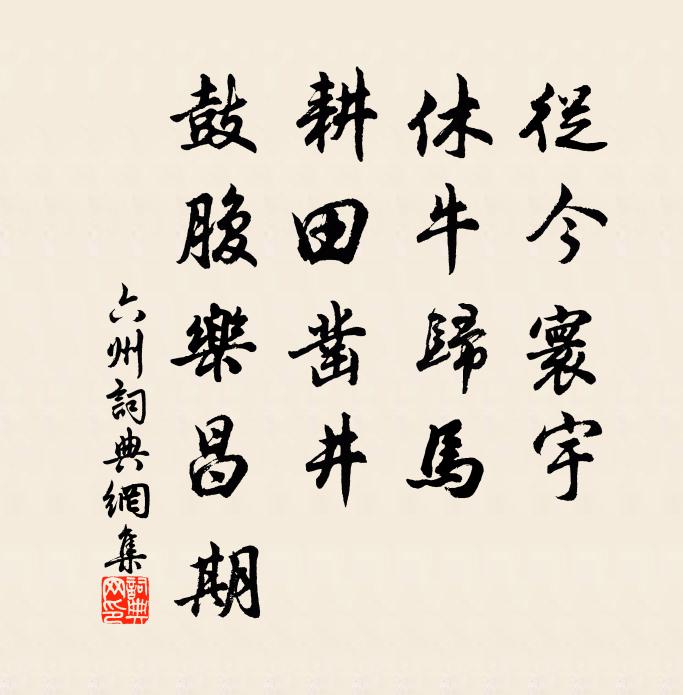 從今寰宇
休牛歸馬
耕田凿井
鼓腹樂昌期
六州詞典網集
詞典网印